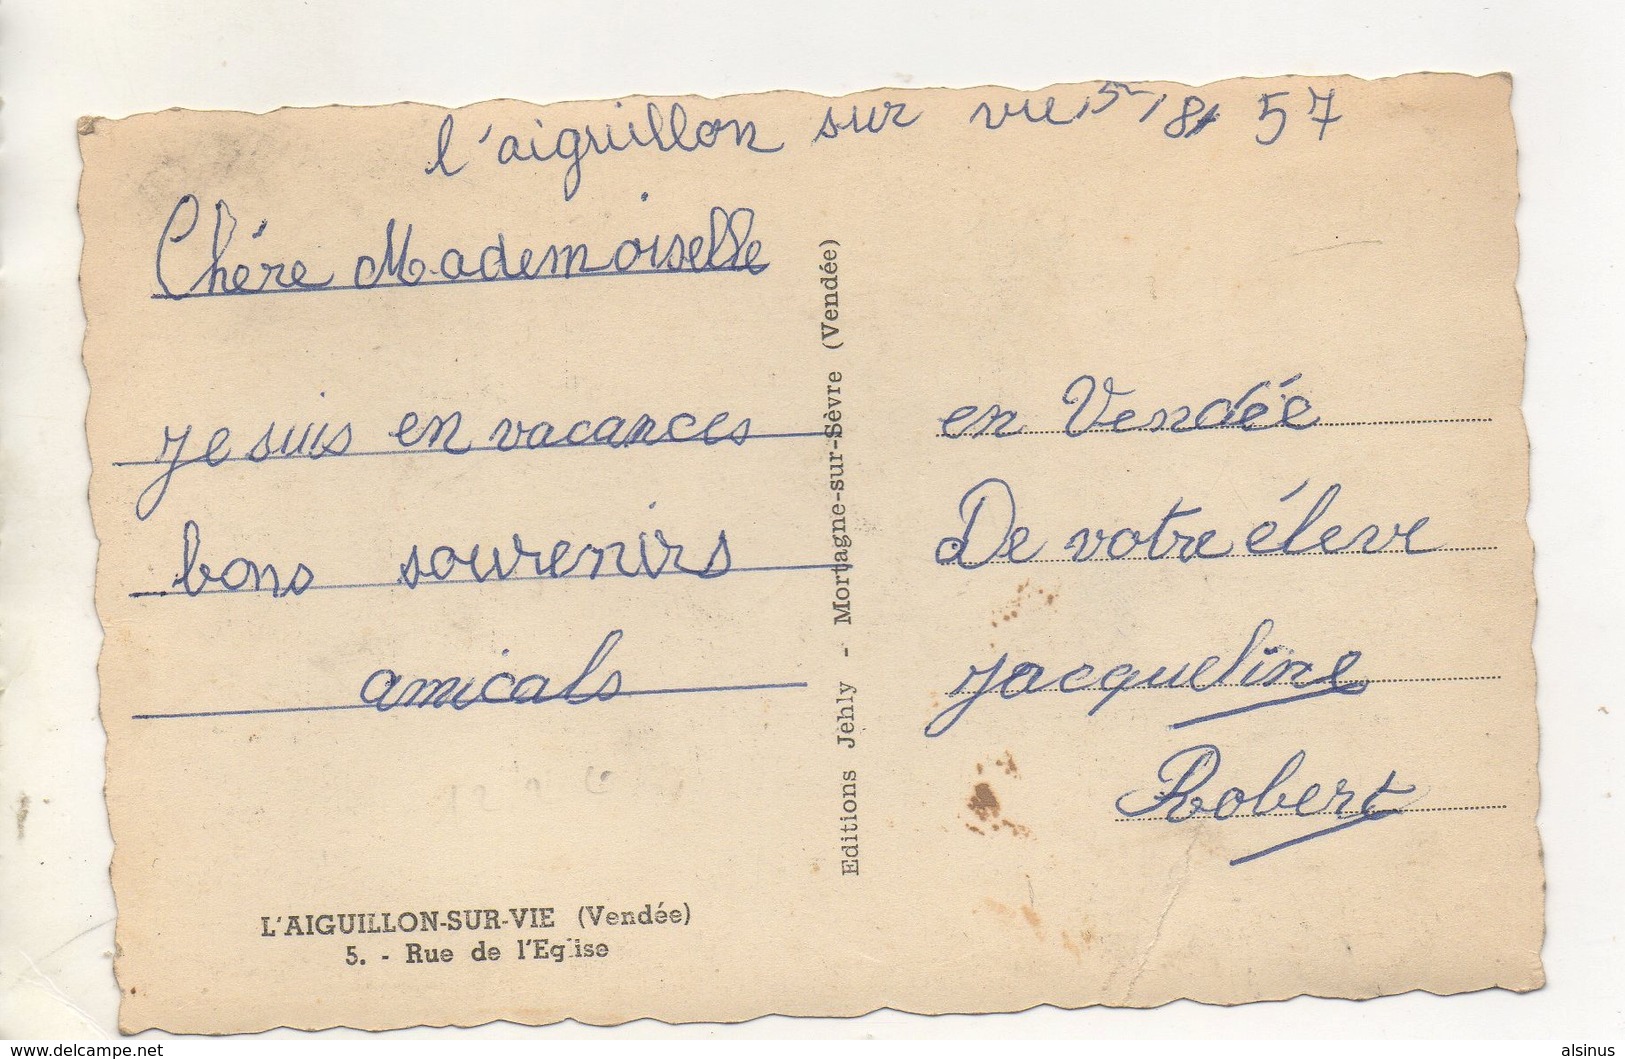 l'aiguillon sur vie 5/8/57
Chére Mademoiselle
je suis en vacances en Vendée
bons souvenirs De votre éleve
amicals jacqueline
Robert
Editions Jehly - Mortagne-sur-Sèvre (Vendée)
L'AIGUILLON-SUR-VIE (Vendée)
5. - Rue de l'Eglise
www.delcampe.net
alsinus